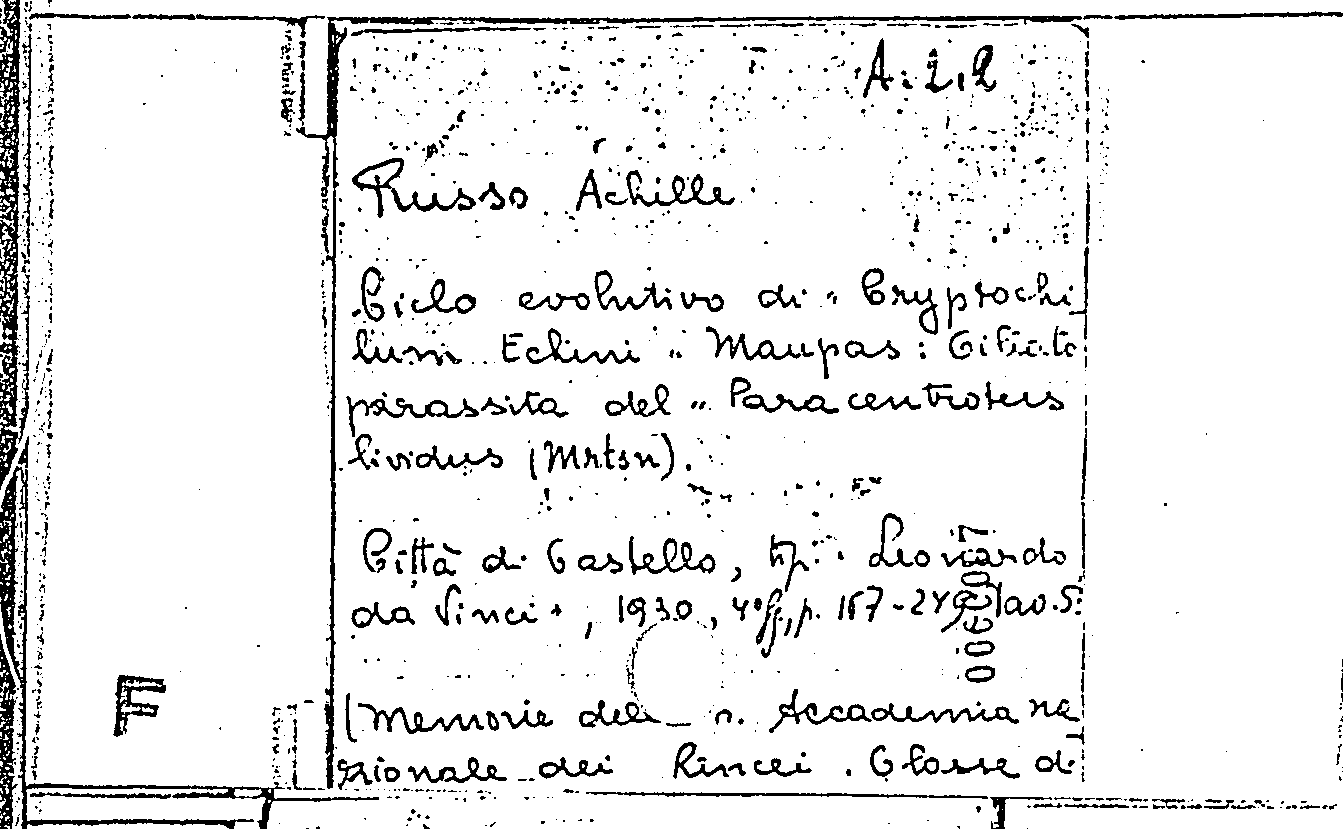 A. 2.2
Russo Achille
Ciclo evolutivo di " Cryptochi
lum Echini " Maupas : Ciliato
parassita del " Paracentrotus
lividus (Mrtsn).
Città di Castello, tip. Leonardo
da Vinci , 1930, 4° ff., p. 167-
(Memorie della R. Accademia na
zionale dei Lincei . Classe di
F